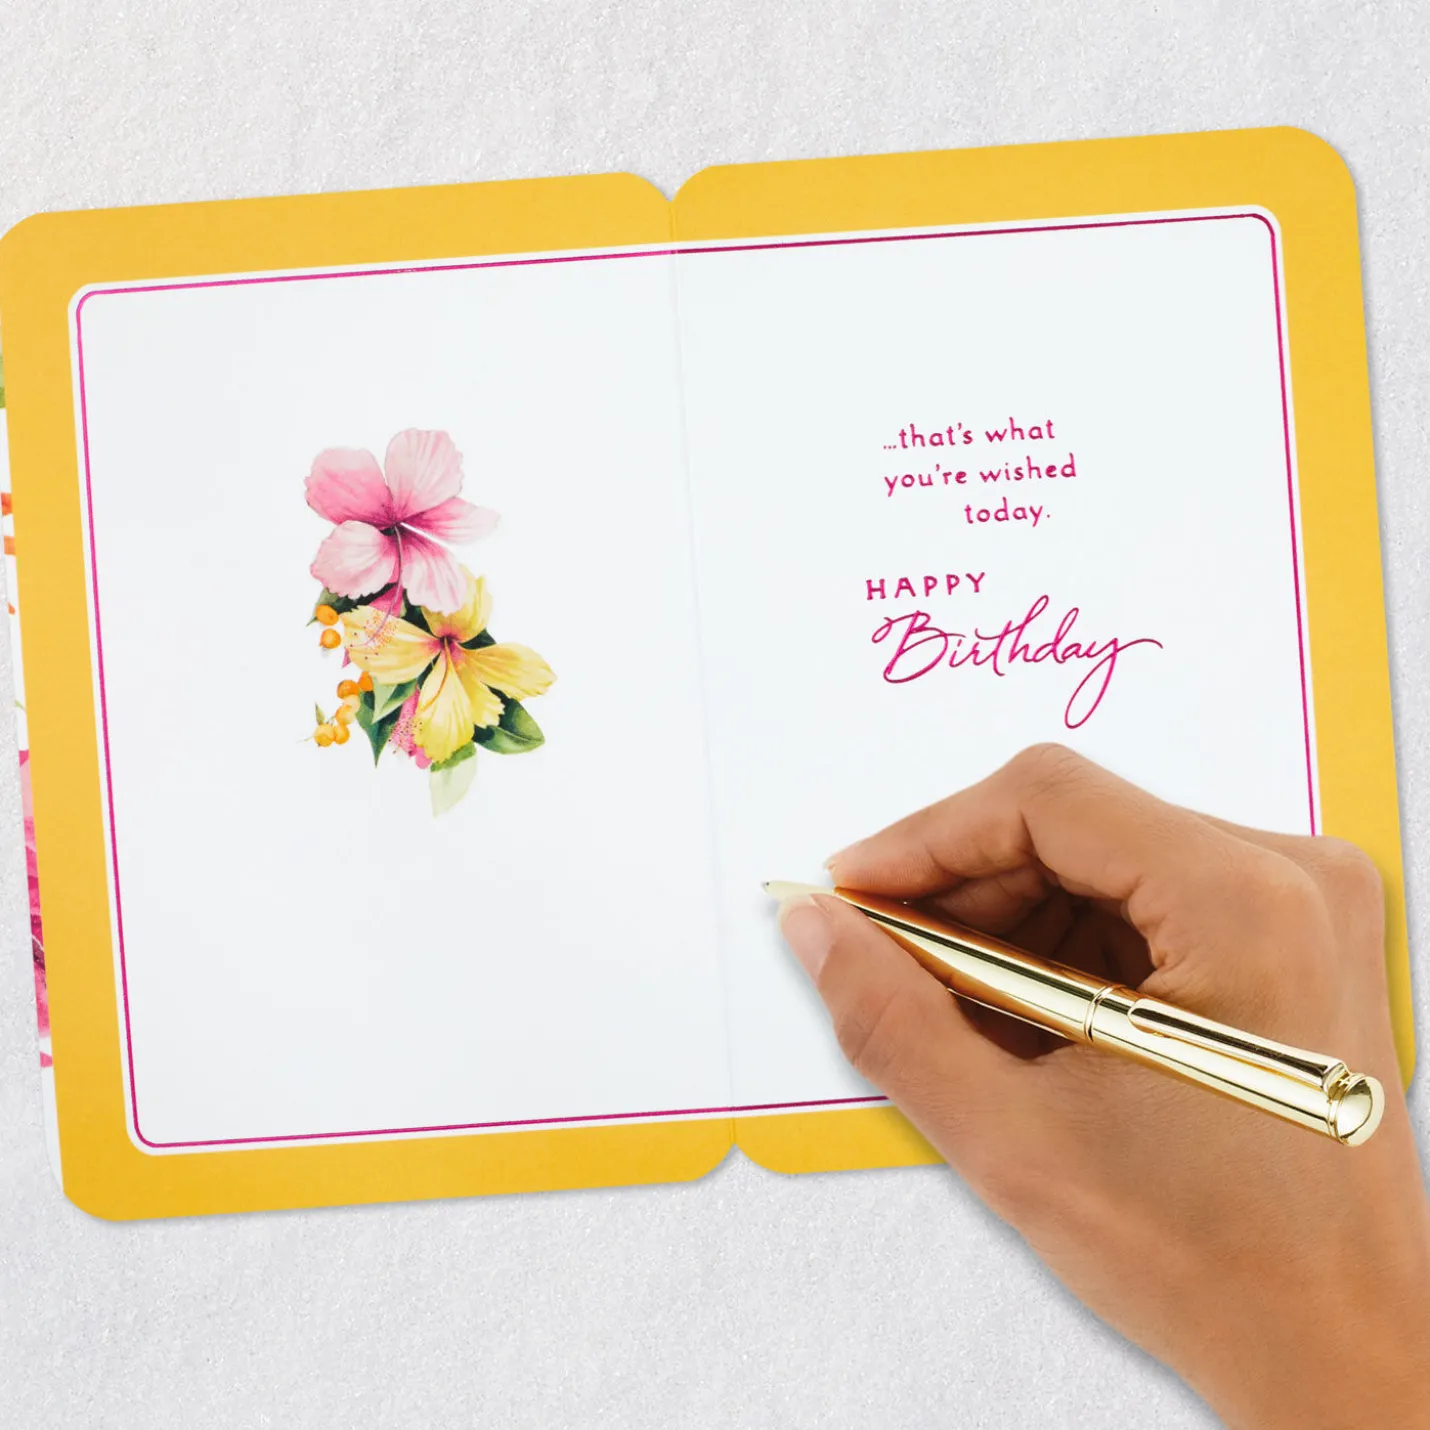 …that's what
you're wished
today.
HAPPY
Birthday